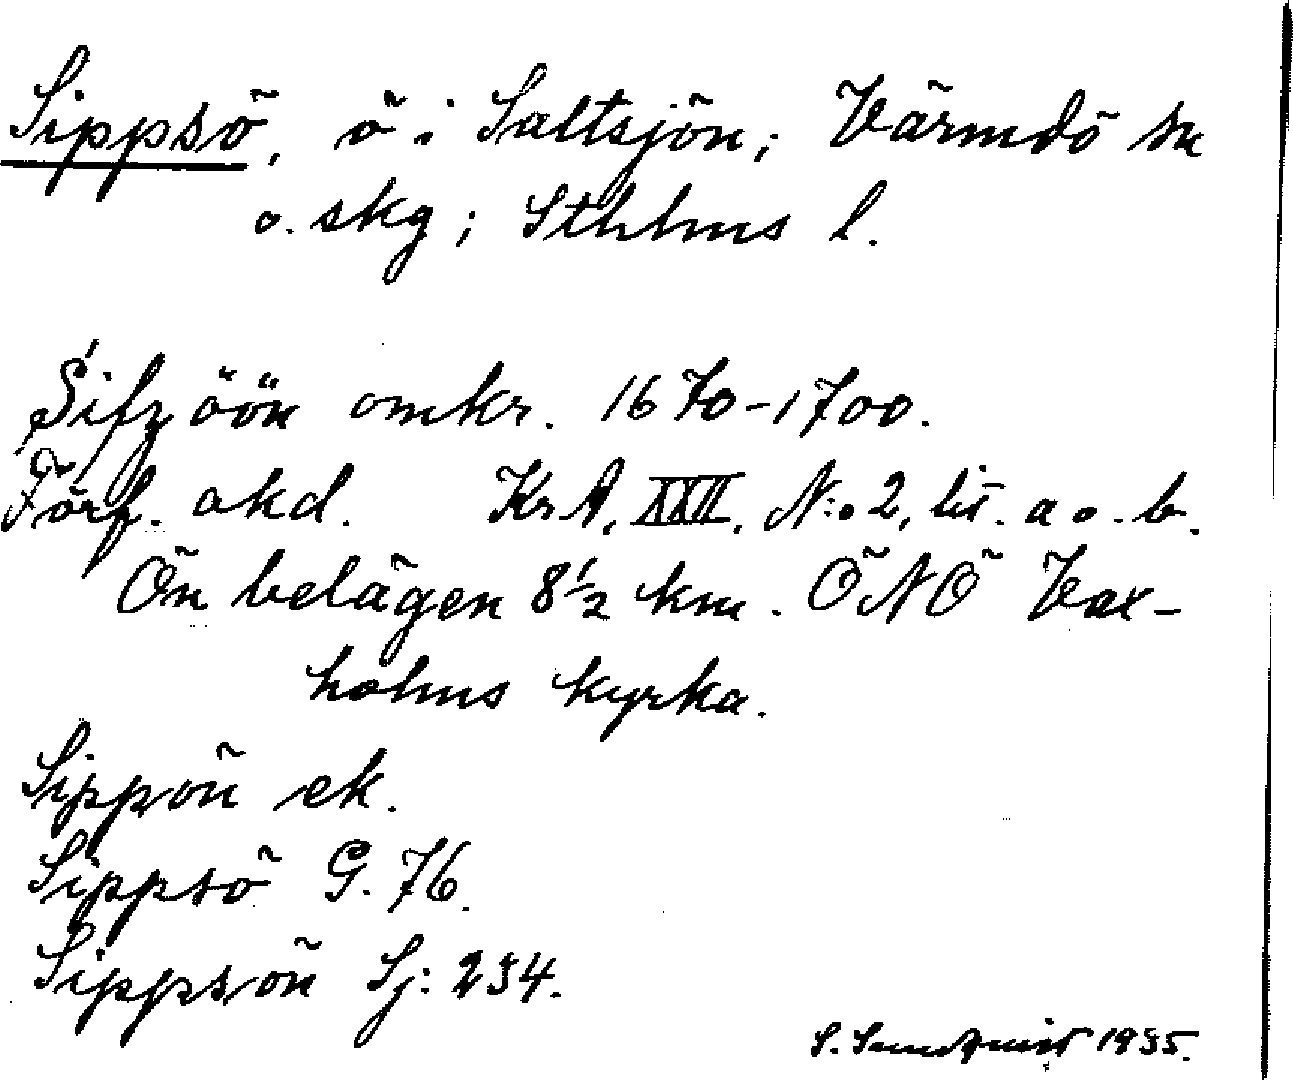 Sippsö, ö i Saltsjön; Värmdö sn
o. skg; Sthlms l.
Sifz öön omkr. 1670-1700.
Förf. okd. KrA, XXII, N:o 2, lit. a o. b.
Ön belägen 8 1/2 km. ÖNÖ Vax-
holms kyrka.
Sippön ek.
Sippsö G. 76.
Sippsön Sj: 234.
S. Sundquist 1935.